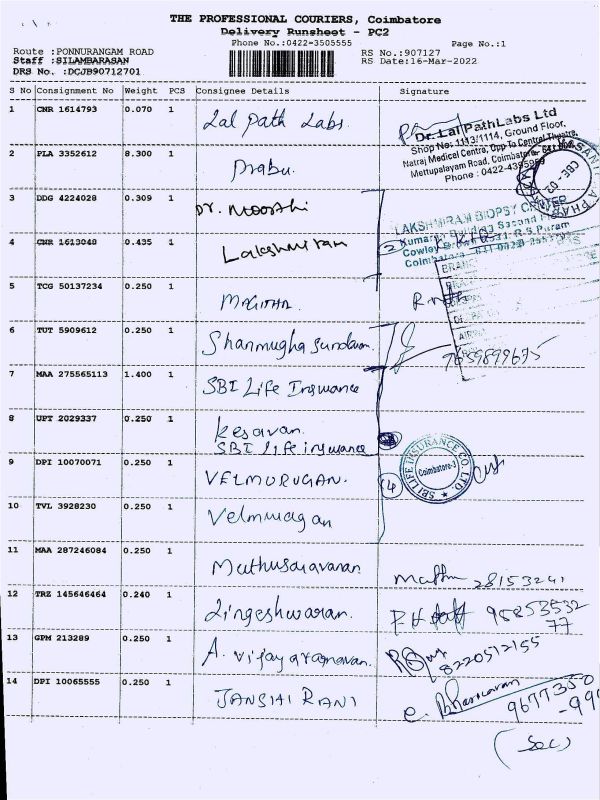 THE PROFESSIONAL COURIERS, Coimbatore
Delivery Runsheet - PC2
Phone No.:0422-3505555
Page No.:1
Route :PONNURANGAM ROAD
RS No.:907127
Staff :SILAMBARASAN
RS Date:16-Mar-2022
DRS No. :DCJB90712701
S No Consignment No Weight PCS Consignee Details Signature
1 CNR 1614793 0.070 1 Lal path Labs.
Dr. Lal PathLabs Ltd
Shop No: 1113/1114, Ground Floor,
Natraj Medical Centre, Opp To Central Theatre,
Mettupalayam Road, Coimbatore-
Phone : 0422-
2 PLA 3352612 8.300 1 Prabu.
CBE-02
3 DDG 4224028 0.309 1 Dr. Moorthi
LAKSHMIRAM BIOPSY CENTER
Kumaran Building Second Floor
Cowley Brown Road, R.S.Puram
4 CNR 1613048 0.435 1 Lakshmiram
5 TCG 50137234 0.250 1
6 TUT 5909612 0.250 1 Shanmugha Sundaram.
7659899675
7 MAA 275565113 1.400 1 SBI Life Insurance
8 UPT 2029337 0.250 1 Kesavan.
SBI Life insurance
9 DPI 10070071 0.250 1 VELMURUGAN. 4
SBI LIFE INSURANCE CO. LTD.
Coimbatore-3
10 TVL 3928230 0.250 1 Velmurugan
11 MAA 287246084 0.250 1 Muthusaravanan
28153241
12 TRZ 145646464 0.240 1 Lingeshwaran. 98853532
77
13 GPM 213289 0.250 1 A. Vijayaragavan.
8220512155
14 DPI 10065555 0.250 1 JANSHI RANI
e. Bhaskaran